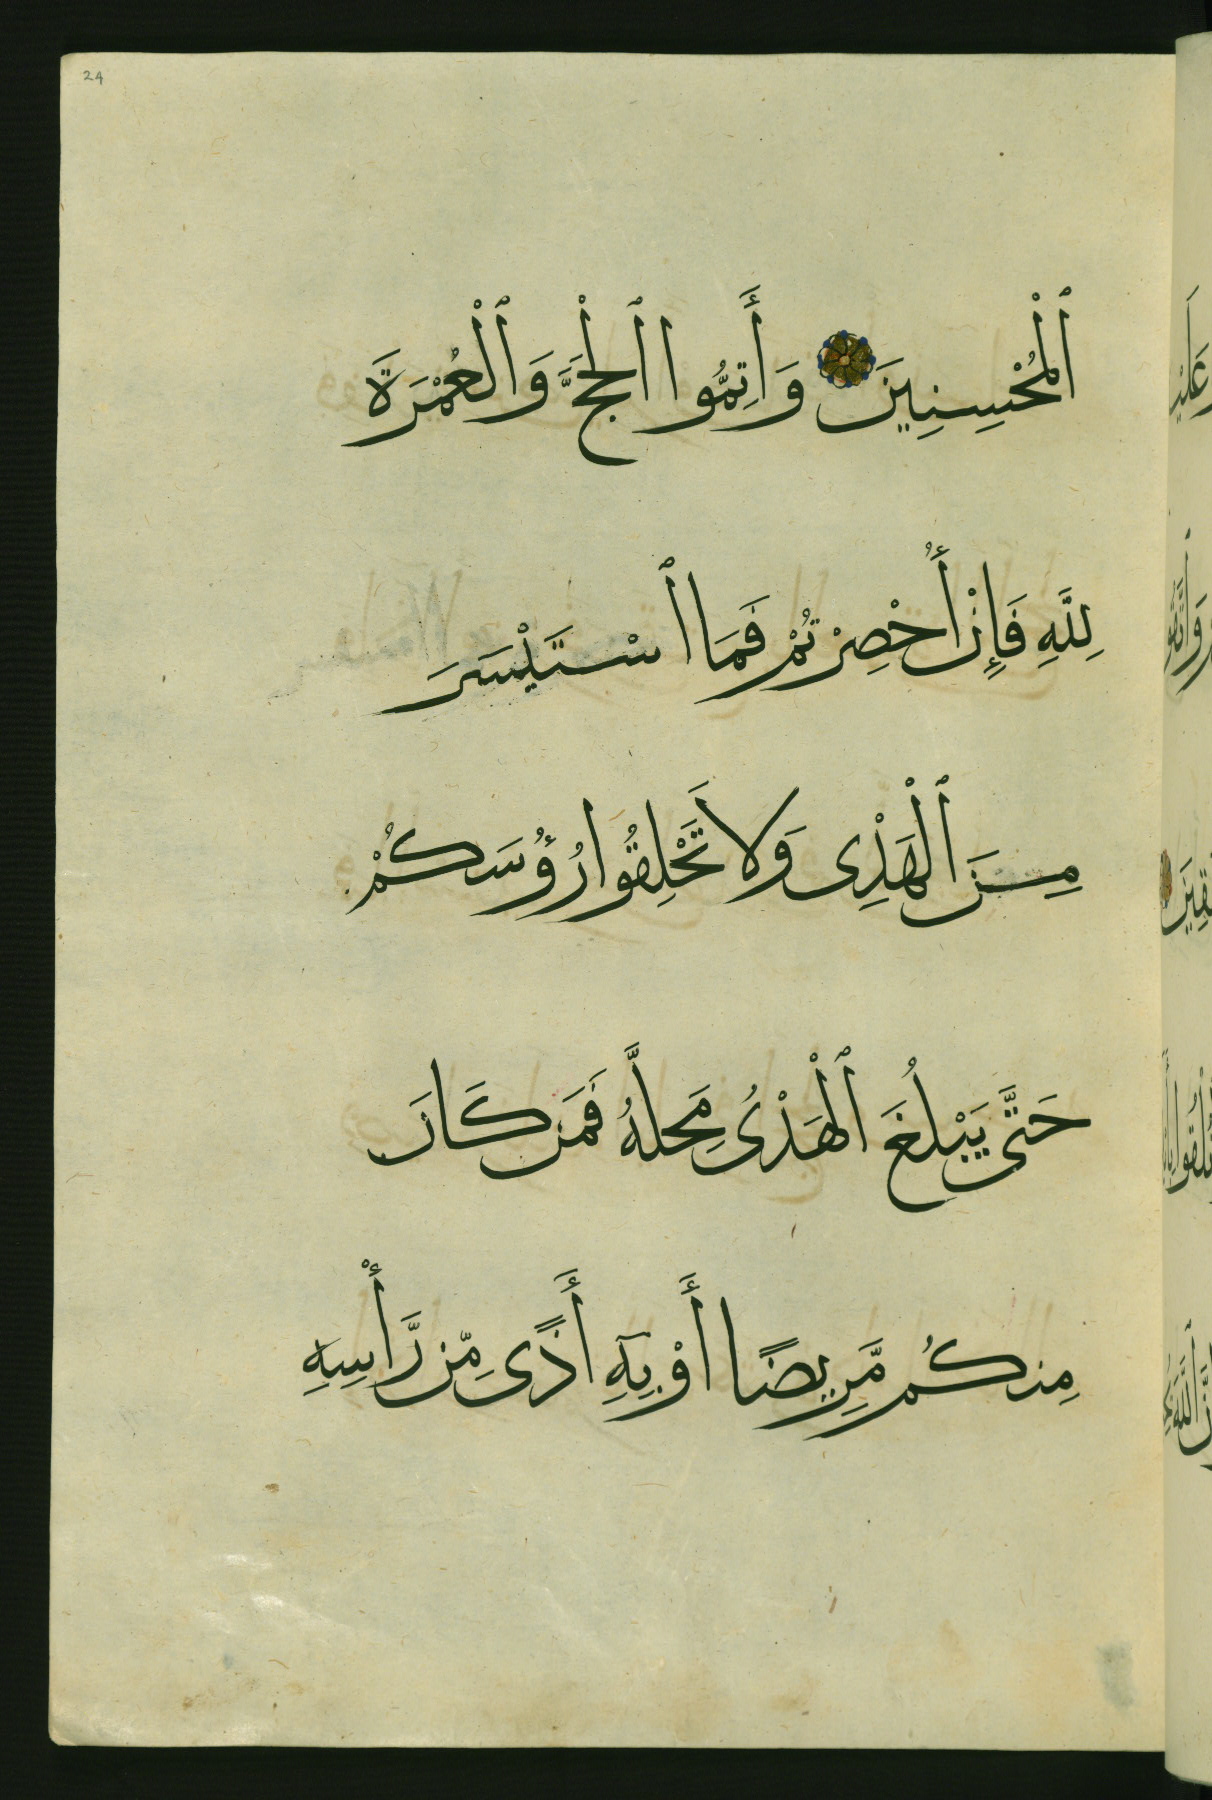 24
ٱلْمُحْسِنِينَ وَأَتِمُّوا ٱلْحَجَّ وَٱلْعُمْرَةَ
لِلَّهِ فَإِنْ أُحْصِرْتُمْ فَمَا ٱسْتَيْسَرَ
مِنَ ٱلْهَدْىِ وَلَا تَحْلِقُوا رُؤُسَكُمْ
حَتَّى يَبْلُغَ ٱلْهَدْىُ مَحِلَّهُ فَمَن كَانَ
مِنكُم مَّرِيضًا أَوْ بِهِٓ أَذًى مِّن رَّأْسِهِ